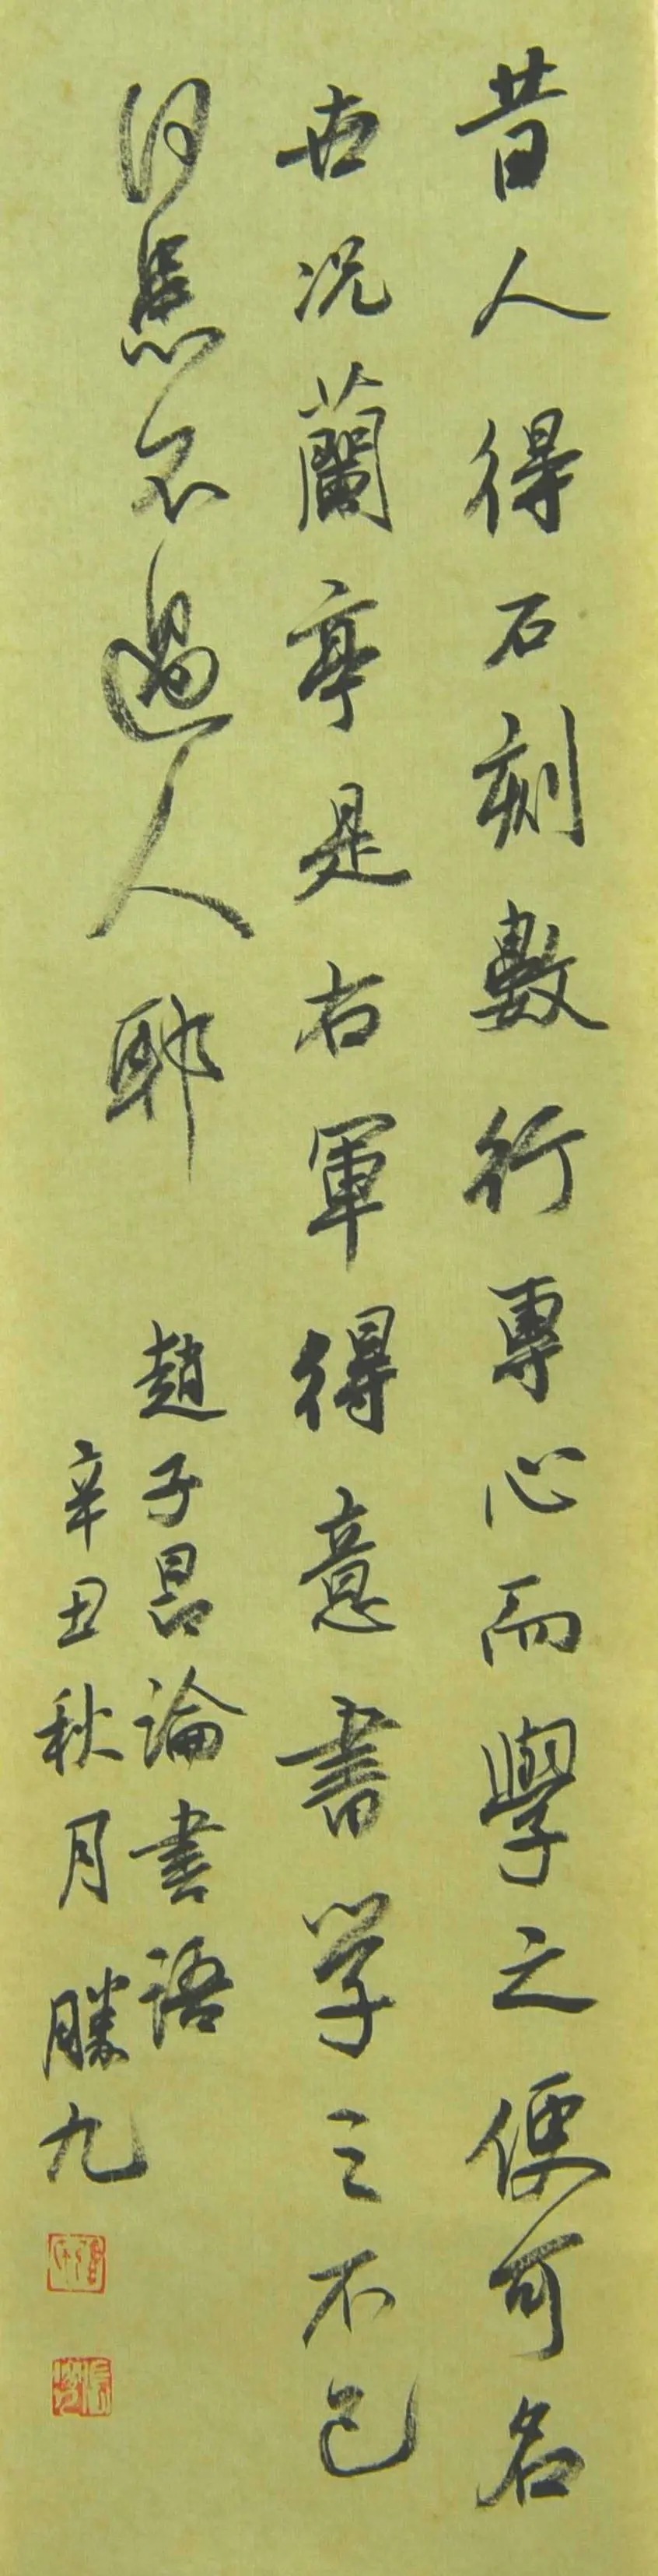 昔人得石刻數行專心而學之便可名
世况蘭亭是右軍得意書学之不已
何患不過人耶
趙子昂論書語
辛丑秋月勝九